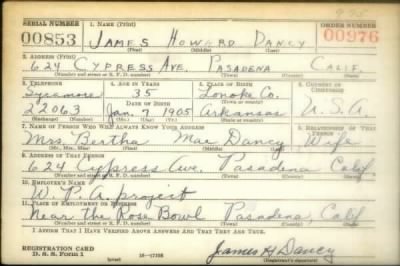 SERIAL NUMBER 1. NAME (Print) ORDER NUMBER
00853 JAMES HOWARD DANCY 00976
(First) (Middle) (Last)
2. ADDRESS (Print)
624 CYPRESS AVE. PASADENA CALIF.
(Number and street or R. F. D. number) (Town) (County) (State)
3. TELEPHONE 4. AGE IN YEARS 5. PLACE OF BIRTH 6. COUNTRY OF CITIZENSHIP
Sycamore 35 Lonoke Co.
DATE OF BIRTH (Town or county)
22063 Jan. 1905 Arkansas U.S.A.
(Exchange) (Number) (Mo.) (Day) (Yr.) (State or country)
7. NAME OF PERSON WHO WILL ALWAYS KNOW YOUR ADDRESS 8. RELATIONSHIP OF THAT PERSON
Mrs. Bertha Mae Dancy Wife
(Mr., Mrs., Miss) (First) (Middle) (Last)
9. ADDRESS OF THAT PERSON
624 Cypress Ave. Pasadena Calif
(Number and street or R. F. D. number) (Town) (County) (State)
10. EMPLOYER'S NAME
W. P. A. project
11. PLACE OF EMPLOYMENT OR BUSINESS
Near the Rose Bowl Pasadena, Calif
(Number and street or R. F. D. number) (Town) (County) (State)
I AFFIRM THAT I HAVE VERIFIED ABOVE ANSWERS AND THAT THEY ARE TRUE.
REGISTRATION CARD James H Dancy
D. S. S. Form 1 (over) 16—17105 (Registrant's signature)